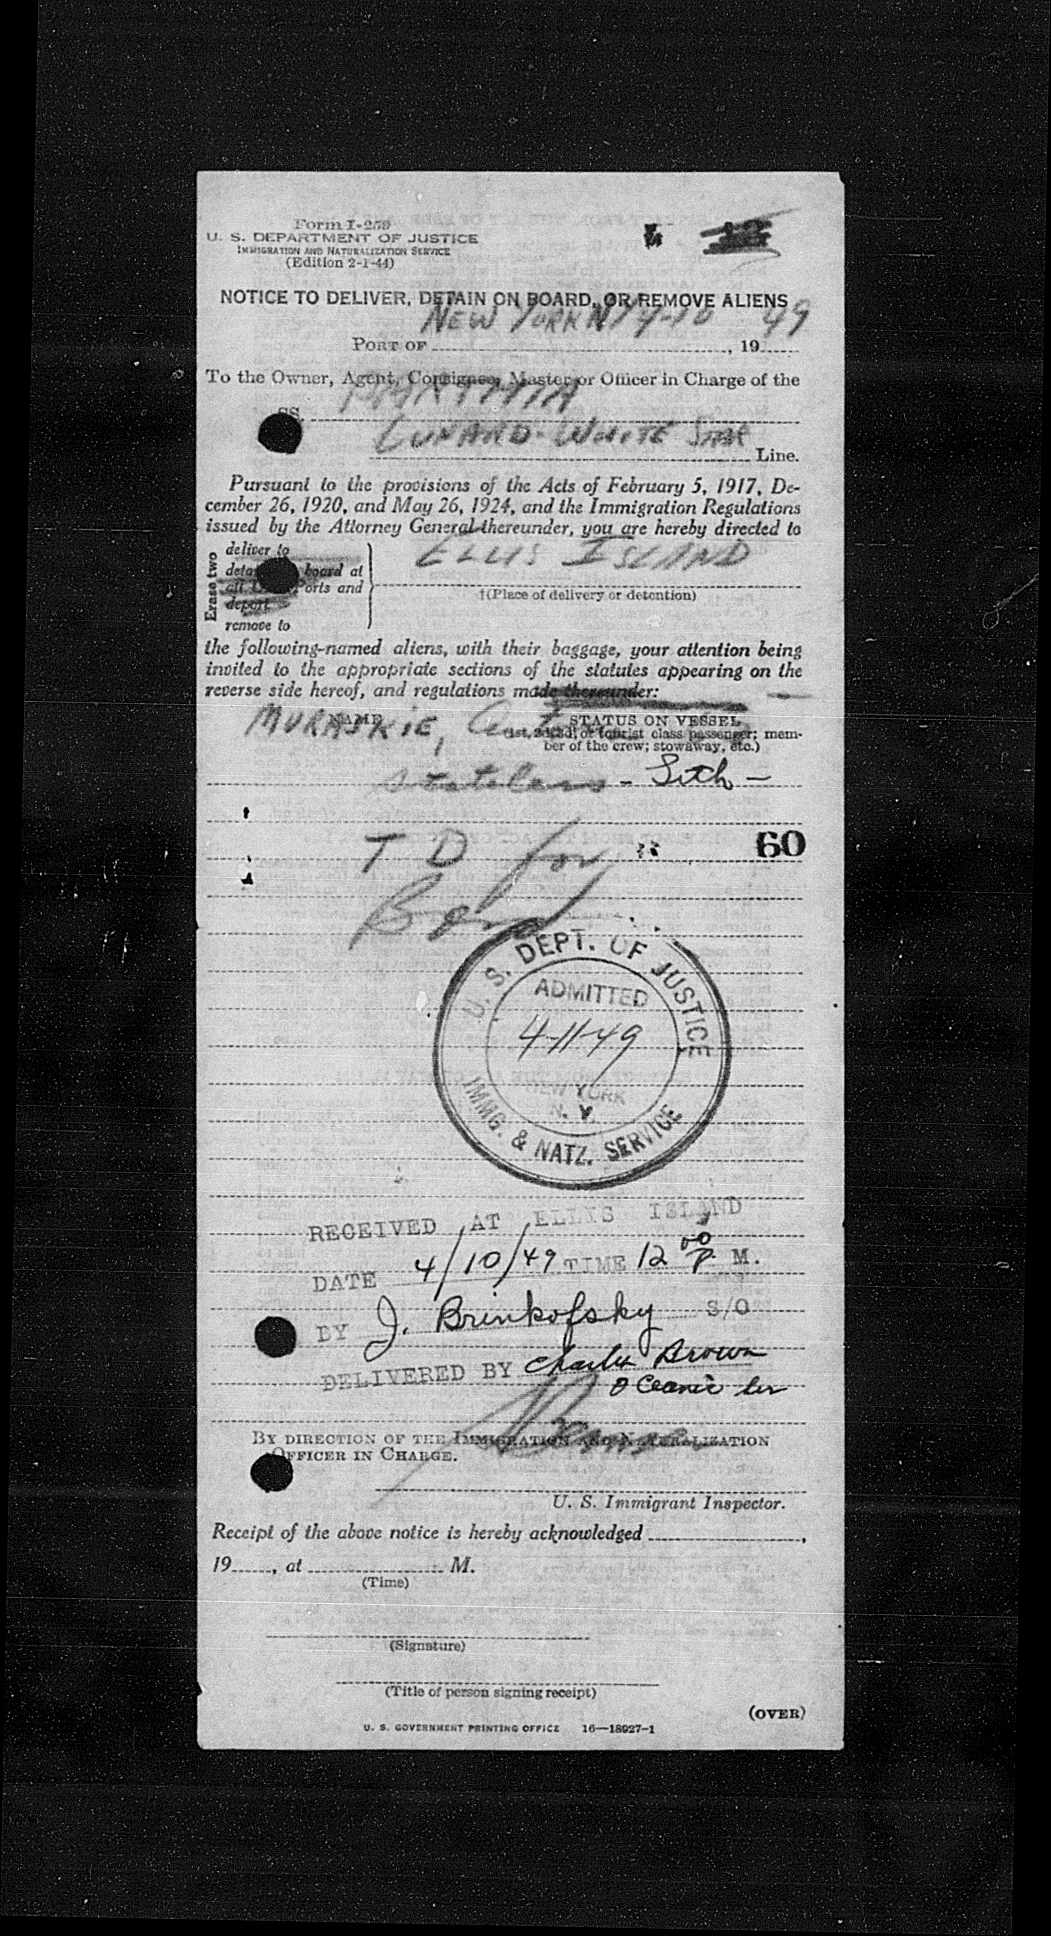 Form I-259
U. S. DEPARTMENT OF JUSTICE
IMMIGRATION AND NATURALIZATION SERVICE
(Edition 2-1-44)
NOTICE TO DELIVER, DETAIN ON BOARD, OR REMOVE ALIENS
NEW YORK NY 4-10 49
PORT OF , 19
To the Owner, Agent, Consignee, Master or Officer in Charge of the
SS. PARTHIA
CUNARD-WHITE STAR
Line.
Pursuant to the provisions of the Acts of February 5, 1917, De-
cember 26, 1920, and May 26, 1924, and the Immigration Regulations
issued by the Attorney General thereunder, you are hereby directed to
Erase two
deliver to
board at
Ports and
deport
remove to
ELLIS ISLAND
†(Place of delivery or detention)
the following-named aliens, with their baggage, your attention being
invited to the appropriate sections of the statutes appearing on the
reverse side hereof, and regulations made thereunder:
NAME STATUS ON VESSEL
MURASKIE,
class passenger; mem-
ber of the crew; stowaway, etc.)
Stateless - Lith -
60
T D for
Bond
U. S. DEPT. OF JUSTICE
ADMITTED
4-11-49
NEW YORK
N. Y.
IMMG. & NATZ. SERVICE
RECEIVED AT ELLIS ISLAND
DATE 4/10/49 TIME 12 00 P M.
BY J. Brinkofsky S/O
DELIVERED BY Charles Brown
Oceanic
BY DIRECTION OF THE IMMIGRATION AND NATURALIZATION
OFFICER IN CHARGE.
U. S. Immigrant Inspector.
Receipt of the above notice is hereby acknowledged ,
19 , at M.
(Time)
(Signature)
(Title of person signing receipt)
(OVER)
U. S. GOVERNMENT PRINTING OFFICE 16—18927-1